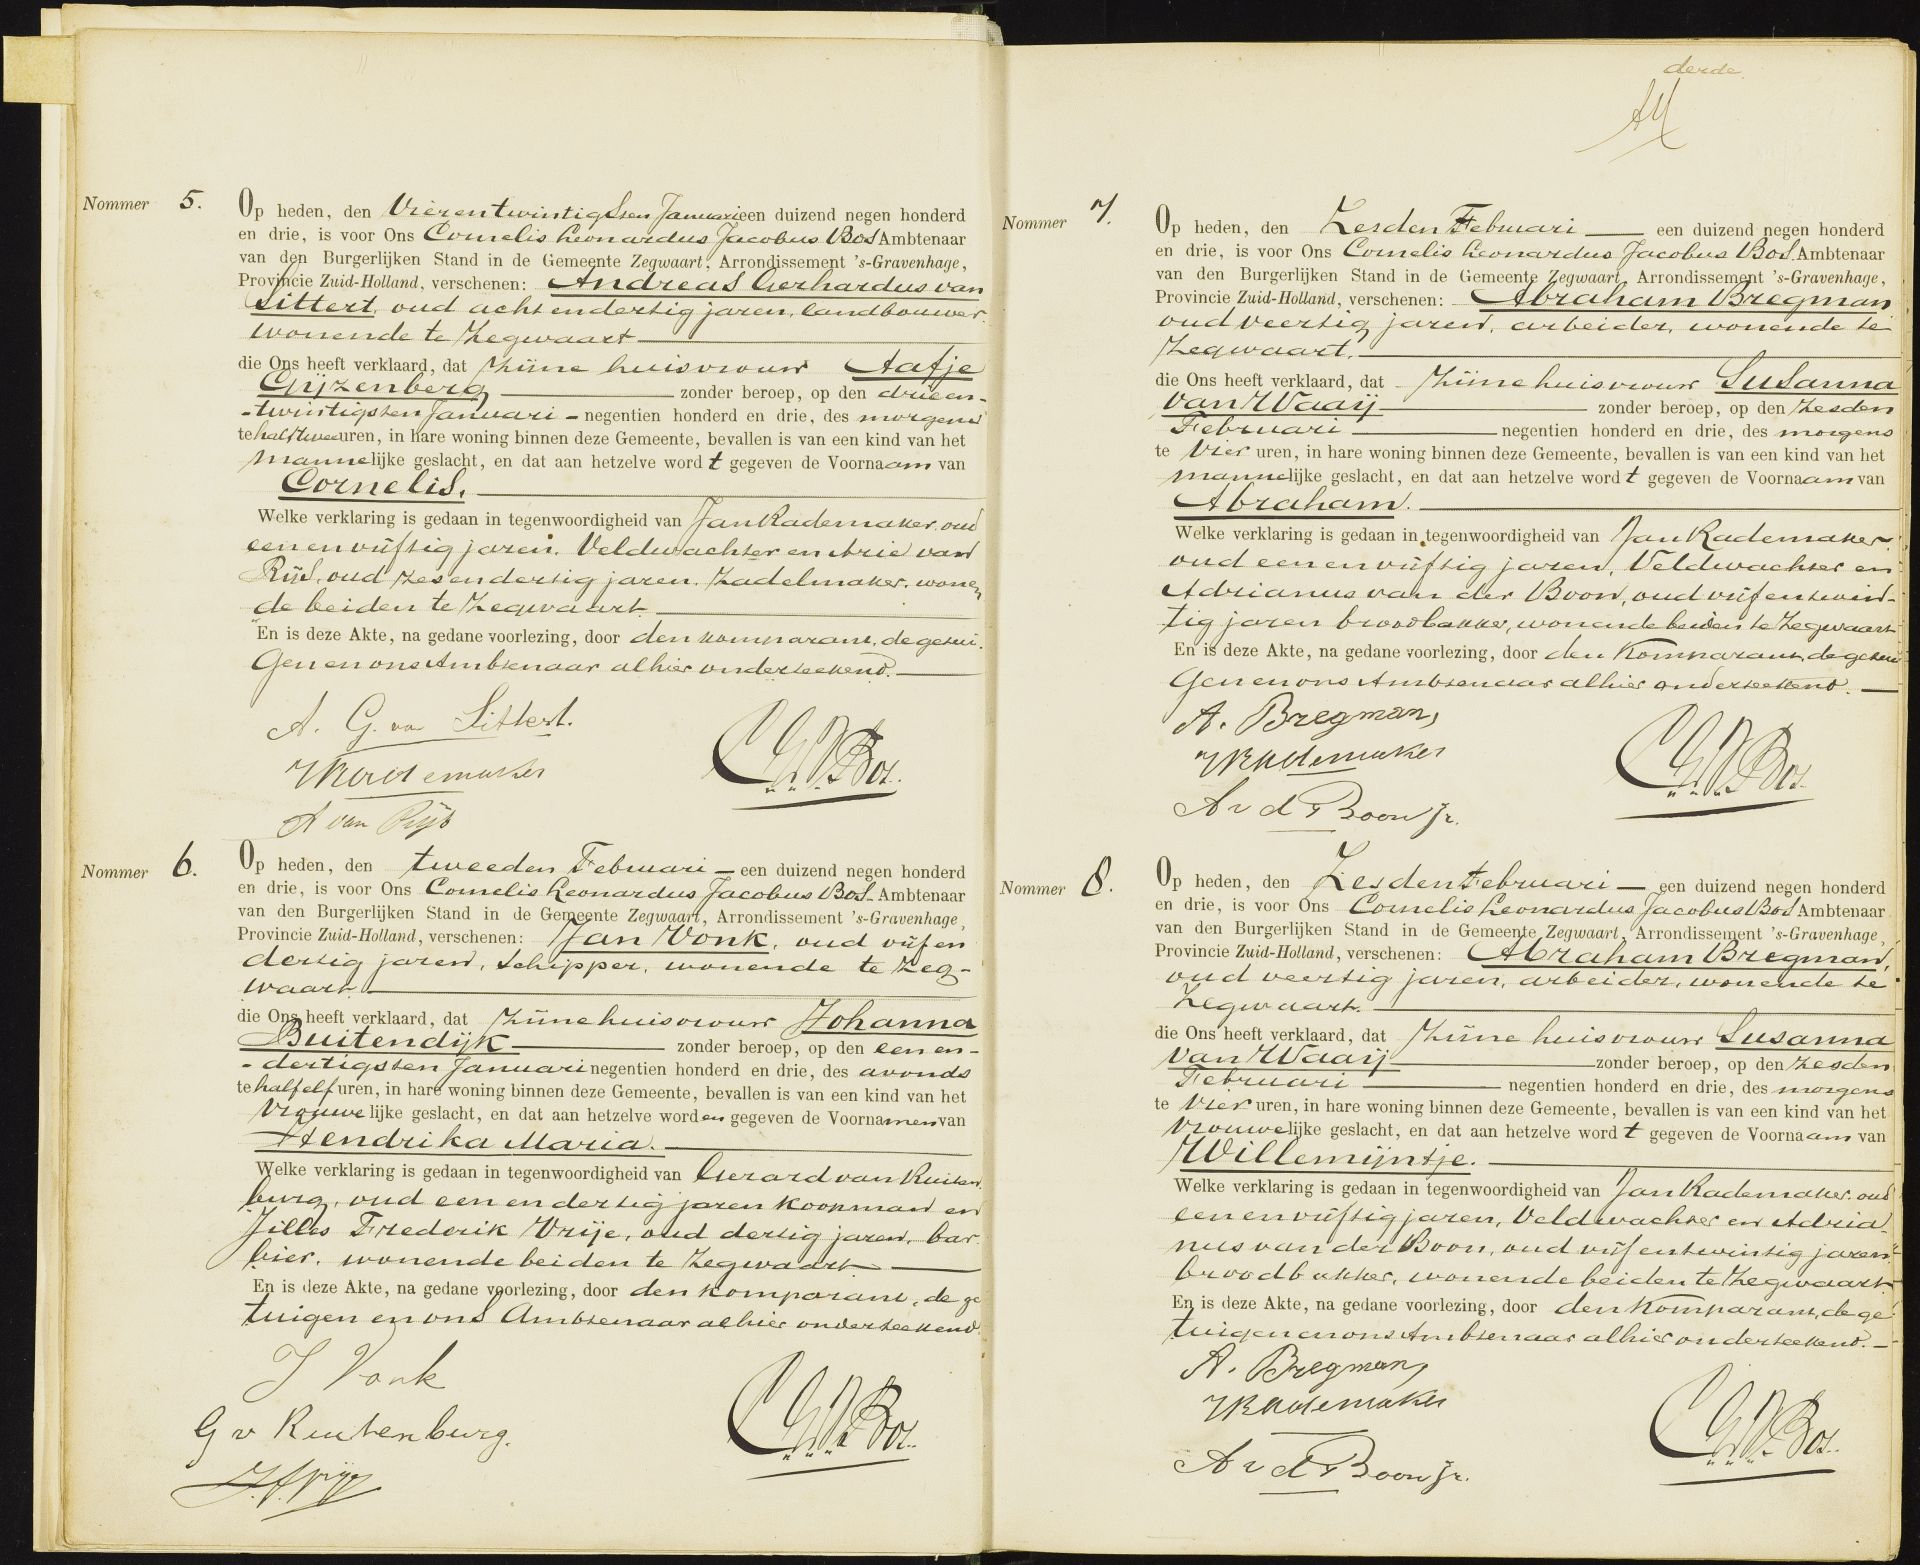 Nommer 5.
Op heden, den Vierentwintigsten Januari een duizend negen honderd
en drie, is voor Ons Cornelis Leonardus Jacobus Bos Ambtenaar
van den Burgerlijken Stand in de Gemeente Zegwaart, Arrondissement 's-Gravenhage,
Provincie Zuid-Holland, verschenen: Andreas Gerhardus van
Sittert, oud acht endertig jaren, landbouwer,
wonende te Zegwaart
die Ons heeft verklaard, dat zijne huisvrouw Aafje
Grijzenberg zonder beroep, op den drieen-
-twintigsten Januari - negentien honderd en drie, des morgens
te half twee uren, in hare woning binnen deze Gemeente, bevallen is van een kind van het
mannelijke geslacht, en dat aan hetzelve wordt gegeven de Voornaam van
Cornelis.
Welke verklaring is gedaan in tegenwoordigheid van Jan Rademaker, oud
een en vijftig jaren, Veldwachter en Arie van
Rijs, oud zesendertig jaren, Zadelmaker, wonen
de beiden te Zegwaart
En is deze Akte, na gedane voorlezing, door den komparant, de getui.
gen en ons Ambtenaar alhier onderteekend.
A. G. van Sittert.
J Rademaker
A van Rijs
CLJBos.
Nommer 6.
Op heden, den tweeden Februari een duizend negen honderd
en drie, is voor Ons Cornelis Leonardus Jacobus Bos Ambtenaar
van den Burgerlijken Stand in de Gemeente Zegwaart, Arrondissement 's-Gravenhage,
Provincie Zuid-Holland, verschenen: Jan Vonk, oud vijf en
dertig jaren, Schipper, wonende te Zeg-
waart
die Ons heeft verklaard, dat zijne huisvrouw Johanna
Buitendijk zonder beroep, op den een en-
-dertigsten Januari negentien honderd en drie, des avonds
te half elf uren, in hare woning binnen deze Gemeente, bevallen is van een kind van het
vrouwelijke geslacht, en dat aan hetzelve worden gegeven de Voornamen van
Hendrika Maria.
Welke verklaring is gedaan in tegenwoordigheid van Gerard van Ruiten
burg, oud een en dertig jaren koopman en
Jilles Frederik Vrije, oud dertig jaren, bar
bier, wonende beiden te Zegwaart
En is deze Akte, na gedane voorlezing, door den komparant, de ge
tuigen en ons Ambtenaar alhier onderteekend
J Vonk
G v Ruitenburg.
CLJBos.
derde
Nommer 7.
Op heden, den Zesden Februari een duizend negen honderd
en drie, is voor Ons Cornelis Leonardus Jacobus Bos Ambtenaar
van den Burgerlijken Stand in de Gemeente Zegwaart, Arrondissement 's-Gravenhage,
Provincie Zuid-Holland, verschenen: Abraham Bregman
oud veertig jaren, arbeider, wonende te
Zegwaart.
die Ons heeft verklaard, dat zijne huisvrouw Susanna
van Waaij zonder beroep, op den zesden
Februari negentien honderd en drie, des morgens
te vier uren, in hare woning binnen deze Gemeente, bevallen is van een kind van het
mannelijke geslacht, en dat aan hetzelve wordt gegeven de Voornaam van
Abraham.
Welke verklaring is gedaan in tegenwoordigheid van Jan Rademaker.
oud een en vijftig jaren, Veldwachter en
Adrianus van der Boon, oud vijf entwin-
tig jaren broodbakker, wonende beiden te Zegwaart
En is deze Akte, na gedane voorlezing, door den Komparant, de getui
gen en ons Ambtenaar alhier onderteekend.
A. Bregman,
J Rademaker
A v d Boon Jr.
CLJBos.
Nommer 8.
Op heden, den Zesden Februari een duizend negen honderd
en drie, is voor Ons Cornelis Leonardus Jacobus Bos Ambtenaar
van den Burgerlijken Stand in de Gemeente Zegwaart, Arrondissement 's-Gravenhage,
Provincie Zuid-Holland, verschenen: Abraham Bregman,
oud veertig jaren, arbeider, wonende te
Zegwaart.
die Ons heeft verklaard, dat zijne huisvrouw Susanna
van Waaij zonder beroep, op den zesden
Februari negentien honderd en drie, des morgens
te vier uren, in hare woning binnen deze Gemeente, bevallen is van een kind van het
vrouwelijke geslacht, en dat aan hetzelve wordt gegeven de Voornaam van
Willemijntje.
Welke verklaring is gedaan in tegenwoordigheid van Jan Rademaker, oud
een en vijftig jaren, Veldwachter en Adria
nus van der Boon, oud vijf entwintig jaren
broodbakker, wonende beiden te Zegwaart
En is deze Akte, na gedane voorlezing, door den Komparant, de ge
tuigen en ons Ambtenaar alhier onderteekend.
A. Bregman,
J Rademaker
A v d Boon Jr.
CLJBos.